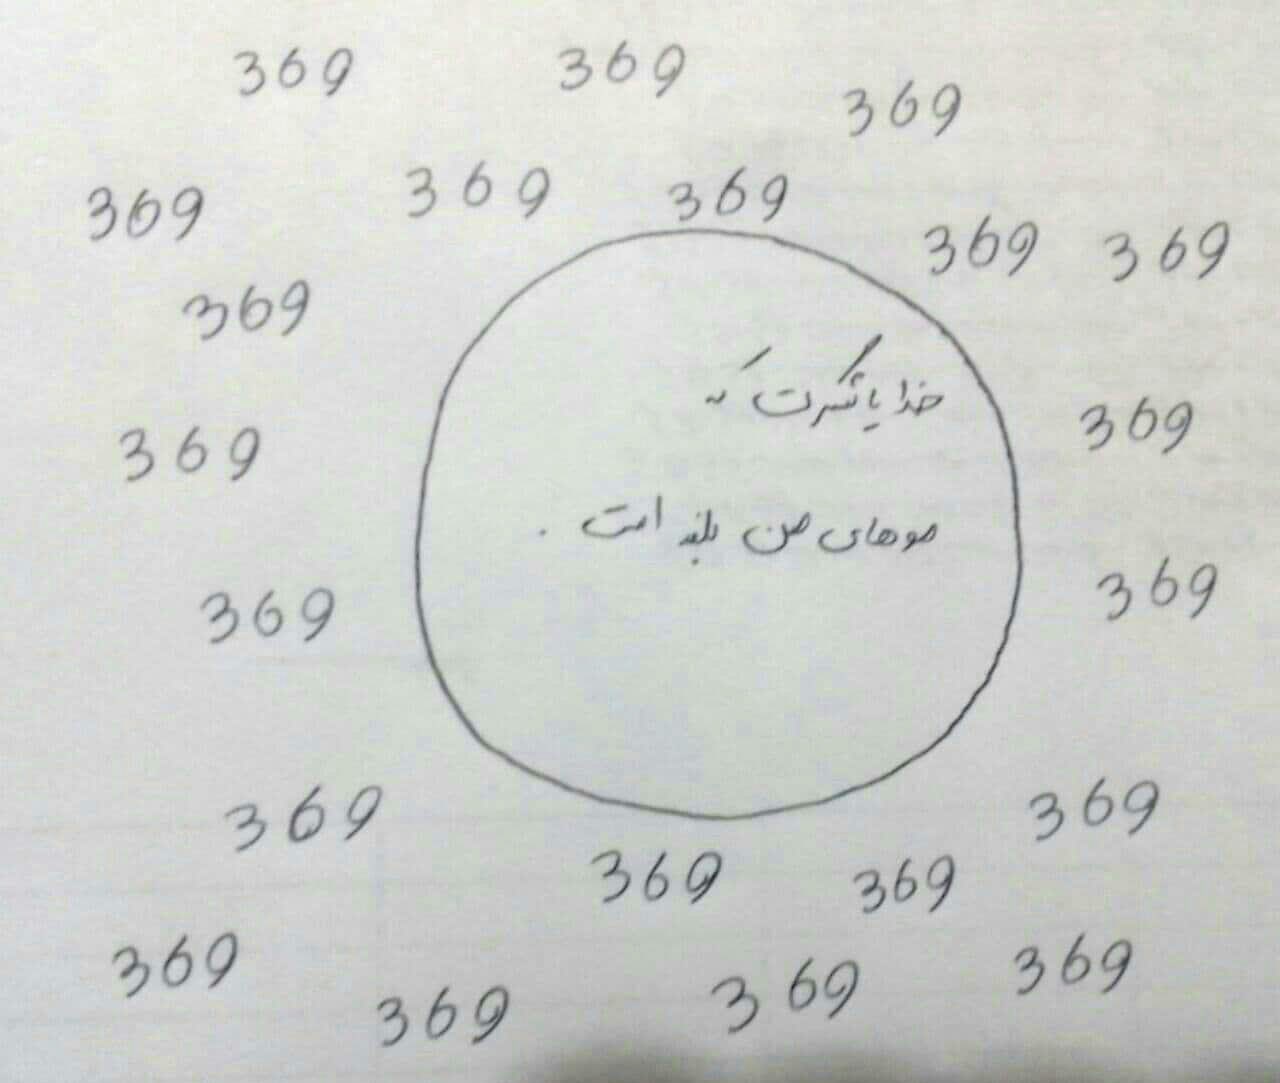 369 369 369
369 369 369 369 369
369
خدایا شکرت که
369 369
موهای من بلند است.
369 369
369 369
369 369
369 369
369 369